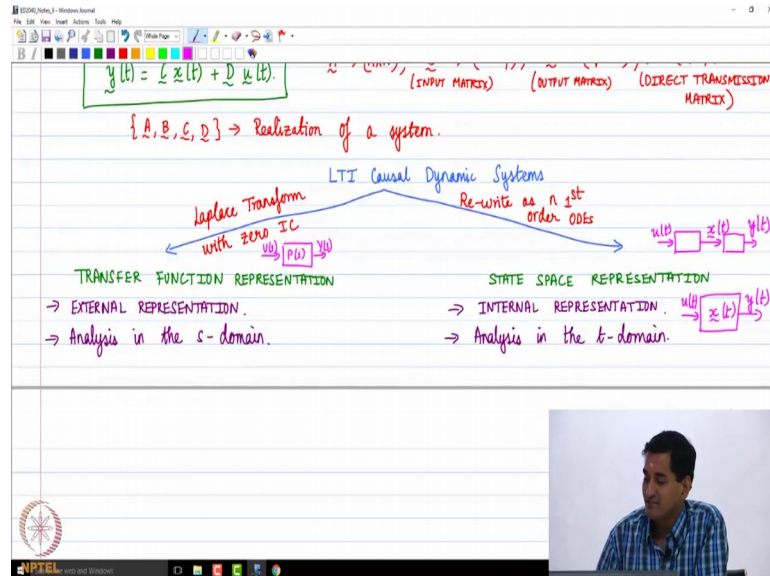 ED2040_Notes_9 - Windows Journal
File Edit View Insert Actions Tools Help
Whole Page
B I
y(t) = C x(t) + D u(t).
(INPUT MATRIX) (OUTPUT MATRIX) (DIRECT TRANSMISSION
MATRIX)
{A, B, C, D} → Realization of a system.
LTI Causal Dynamic Systems
Laplace Transform
with zero IC
Re-write as n 1st
order ODEs
U(s) P(s) Y(s)
u(t) x(t) y(t)
TRANSFER FUNCTION REPRESENTATION
STATE SPACE REPRESENTATION
→ EXTERNAL REPRESENTATION.
→ INTERNAL REPRESENTATION.
u(t) x(t) y(t)
→ Analysis in the s-domain.
→ Analysis in the t-domain.
NPTEL
the web and Windows